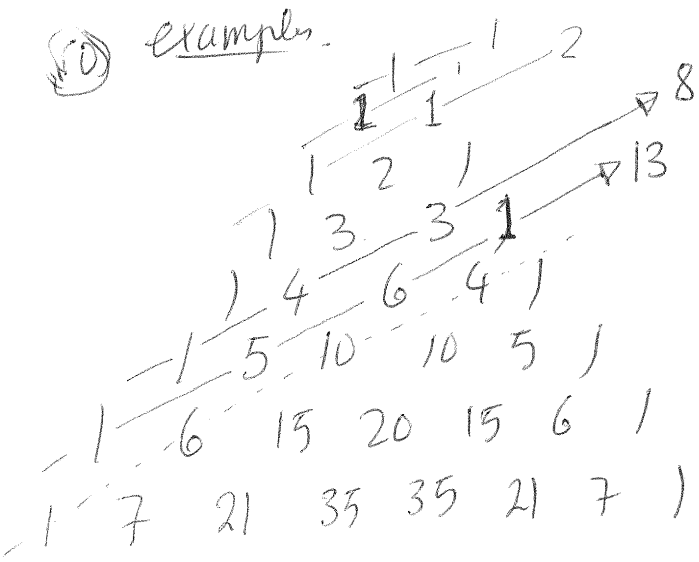 examples.
1 1
1 2
1 1 8
1 2 1 13
1 3 3 1
1 4 6 4 1
1 5 10 10 5 1
1 6 15 20 15 6 1
1 7 21 35 35 21 7 1